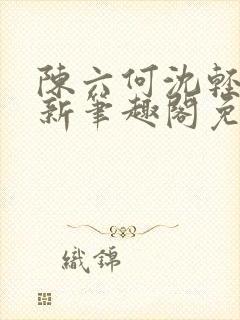 陳六何沈輕
新筆趣閣免
織錦